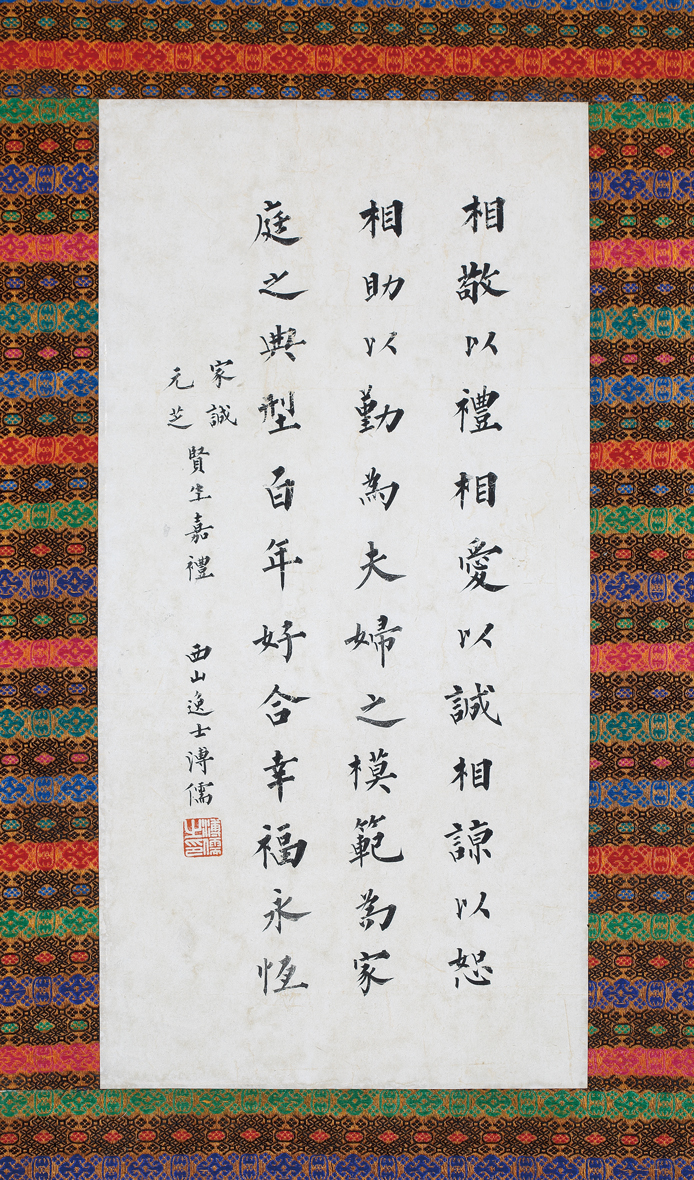 相敬以禮相愛以誠相諒以恕
相助以勤為夫婦之模範為家
庭之典型百年好合幸福永恆
家誠
元芝
賢坐嘉禮 西山逸士溥儒
溥儒之印